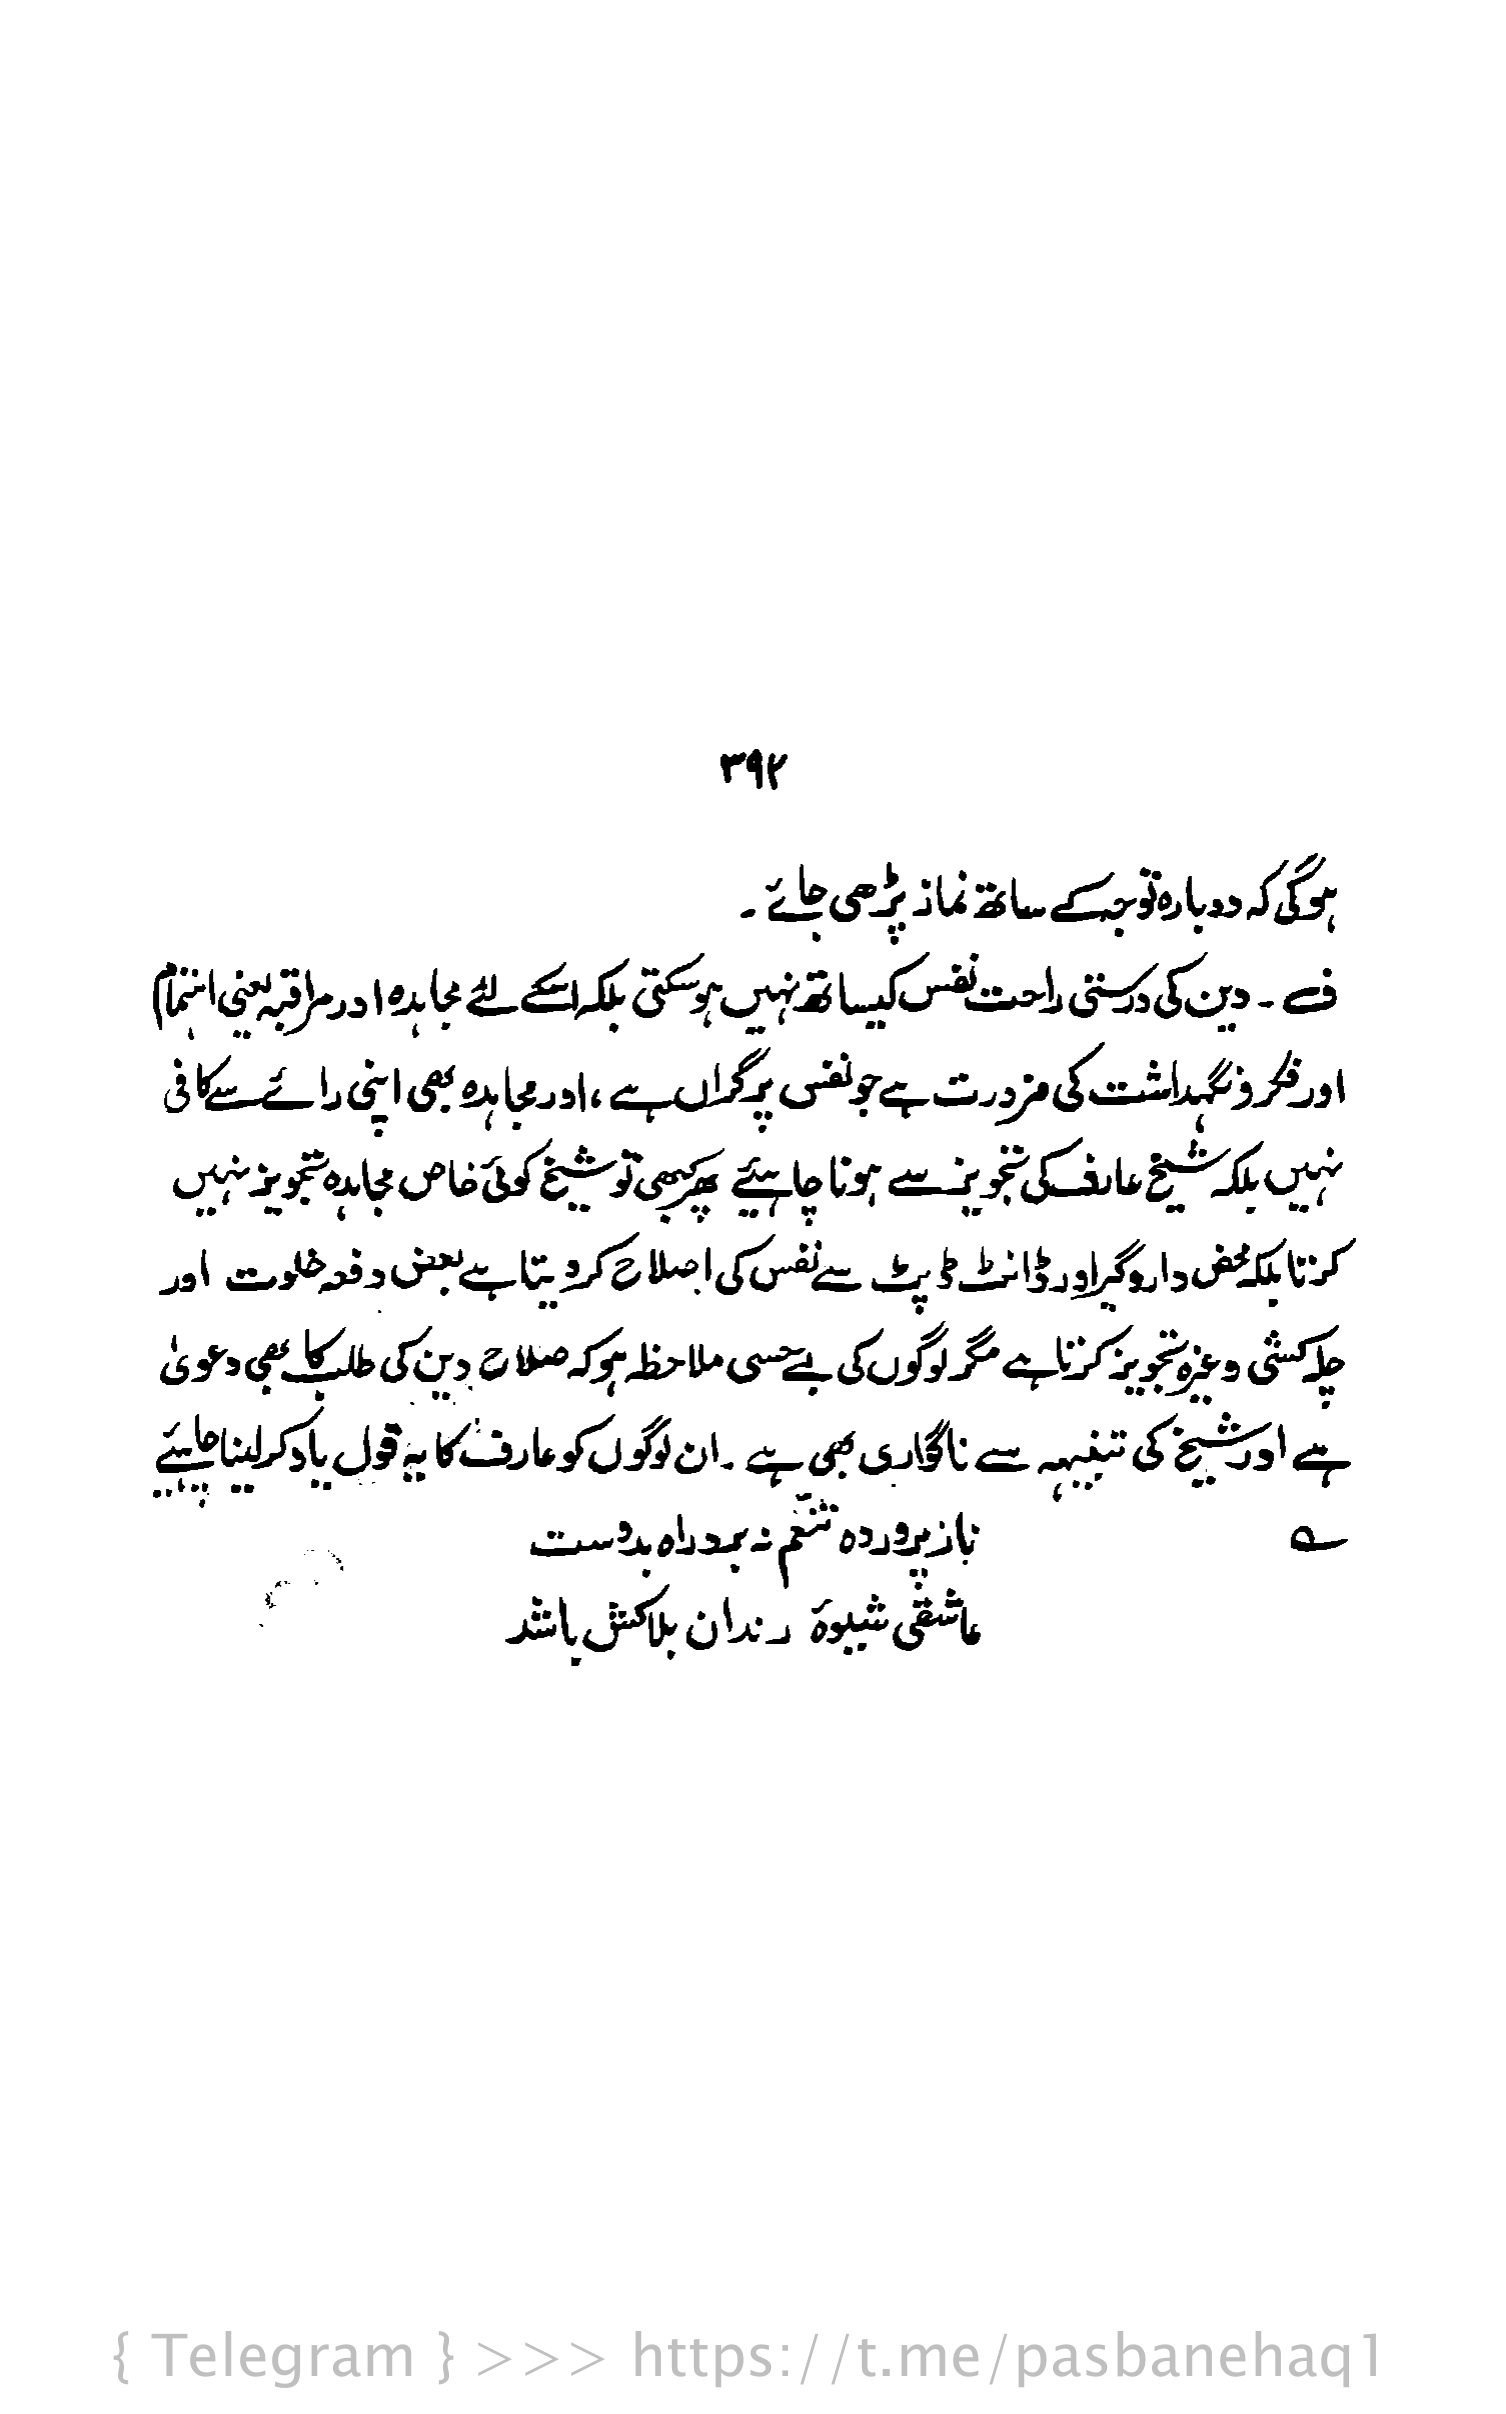 ۳۹۲
ہوگی کہ دوبارہ توجہ کے ساتھ نماز پڑھی جائے ۔
فے ۔ دین کی درستی راحت نفس کیساتھ نہیں ہوسکتی بلکہ اسکے لئے مجاہدہ اور مراقبہ یعنی اہتمام
اور فکر و نگہداشت کی ضرورت ہے جو نفس پر گراں ہے ، اور مجاہدہ بھی اپنی رائے سے کافی
نہیں بلکہ شیخ عارف کی تجویز سے ہونا چاہیئے پھر کبھی تو شیخ کوئی خاص مجاہدہ تجویز نہیں
کرتا بلکہ محض دار و گیر اور ڈانٹ ڈپٹ سے نفس کی اصلاح کر دیتا ہے بعض دفعہ خلوت اور
چلہ کشی وغیرہ تجویز کرتا ہے مگر لوگوں کی بے حسی ملاحظہ ہو کہ صلاح دین کی طلب کا بھی دعویٰ
ہے اور شیخ کی تنبیہہ سے ناگواری بھی ہے ۔ ان لوگوں کو عارف کا یہ قول یاد کر لینا چاہیئے
؎ ناز پروردہ تنعّم نہ برد راہ بدوست
عاشقی شیوۂ رندان بلاکش باشد
{ Telegram } >>> https://t.me/pasbanehaq1